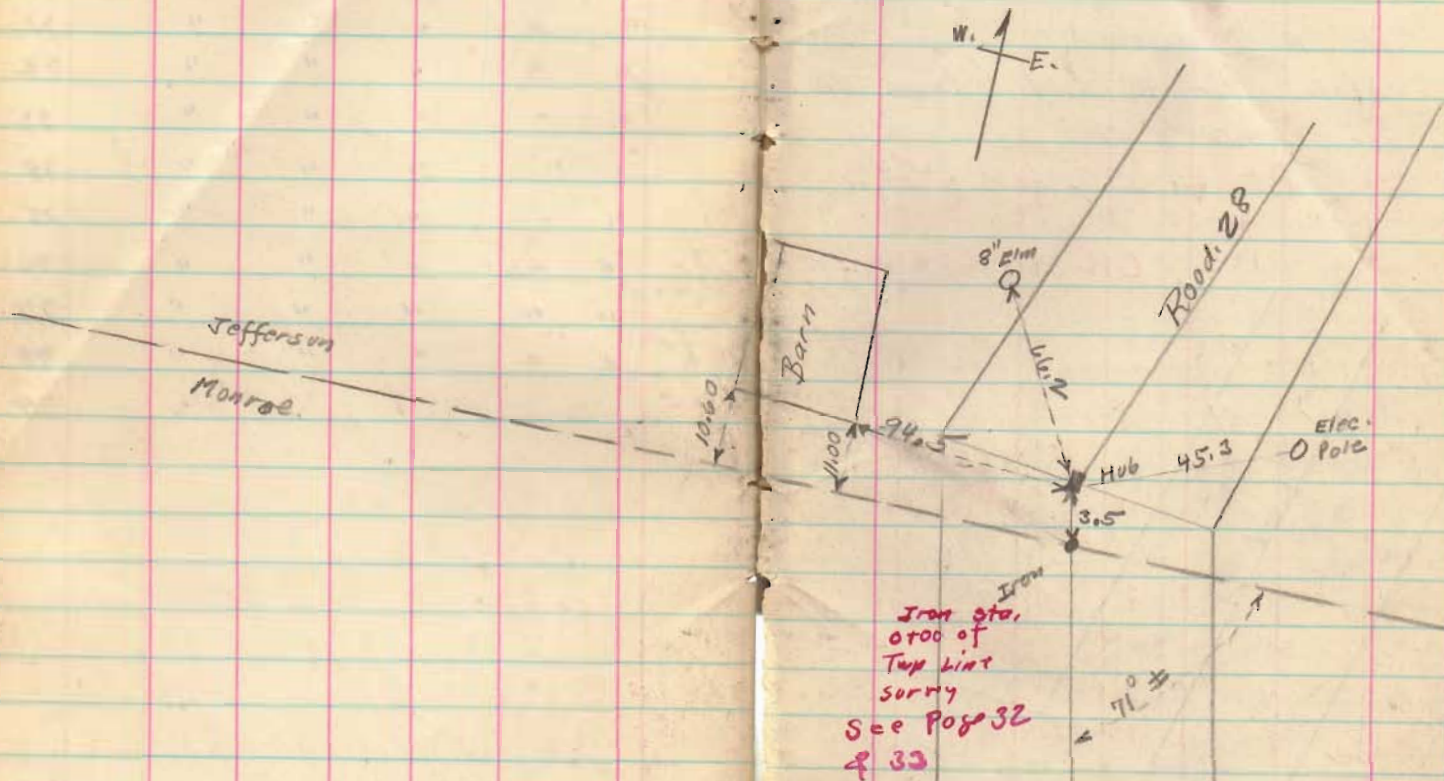 W.
E.
8" Elm
Road. 28
Jefferson
Monroe.
Barn
10.60
11.00
94.5
66.2
Hub
45.3
Elec.
Pole
3.5
Iron
71°
Iron sta.
0+00 of
Twp Line
surry
See Page 32
& 33